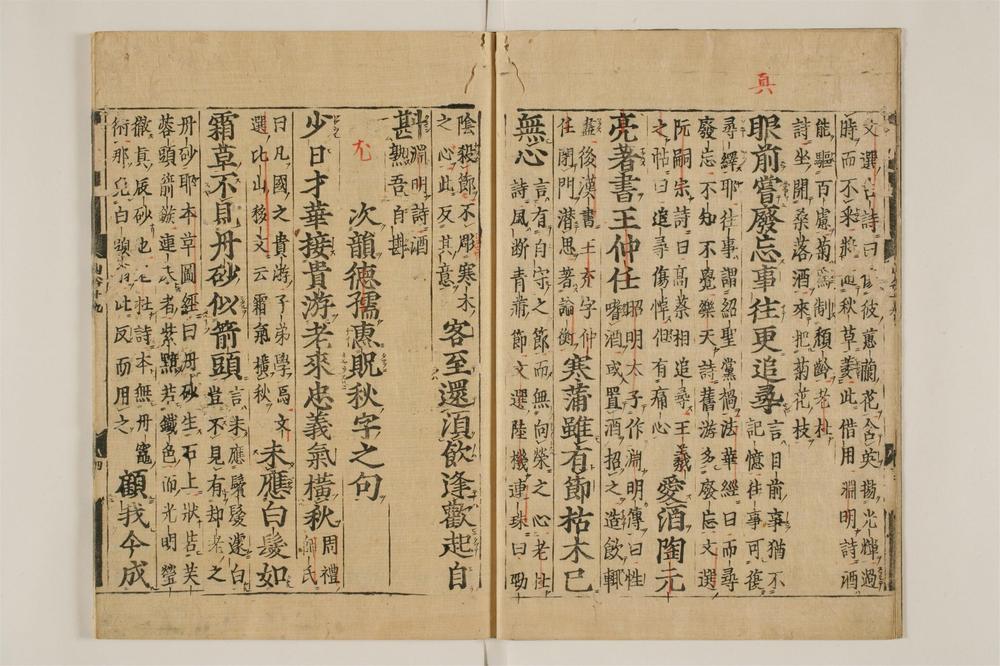 真
文選古詩曰傷彼蕙蘭花含英揚光輝過
時而不采將隨秋草萎此借用淵明詩酒
能驅百慮菊爲制頹齡老杜
詩坐開桑落酒來把菊花枝
眼前嘗廢忘事往更追尋言目前事猶不
記憶往事可復
尋繹耶往事謂紹聖黨禍法華經曰而尋
廢忘不知不覺樂天詩舊游多廢忘文選
阮嗣宗詩曰高蔡相追尋王羲
之帖曰追尋傷悼但有痛心愛酒陶元
亮著書王仲任昭明太子作淵明傳曰性
嗜酒或置酒招之造飲輒
盡後漢書王充字仲
任閉門潛思著論衡寒蒲雖有節枯木已
無心言有自守之節而無向榮之心老杜
詩風断青蒲節文選陸機連珠曰勁
陰殺節不彫寒木
之心此反其意客至還須飲逢歡起自
斟淵明詩酒
甚熟吾自斟
次韻德孺惠貺秋字之句
充
少日才華接貴游老來忠義氣橫秋周禮
師氏
曰凡國之貴游子弟學焉文
選北山移文云霜氣橫秋未應白髮如
霜草不見丹砂似箭頭言未應鬢髮遽白
豈不見有却老之
丹砂耶本草圖經曰丹砂生石上狀若芙
蓉頭箭鏃連床者紫黯若鐵色而光明瑩
徹真辰砂也老杜詩本無丹竈
術那免白頭翁此反而用之顧我今成
四